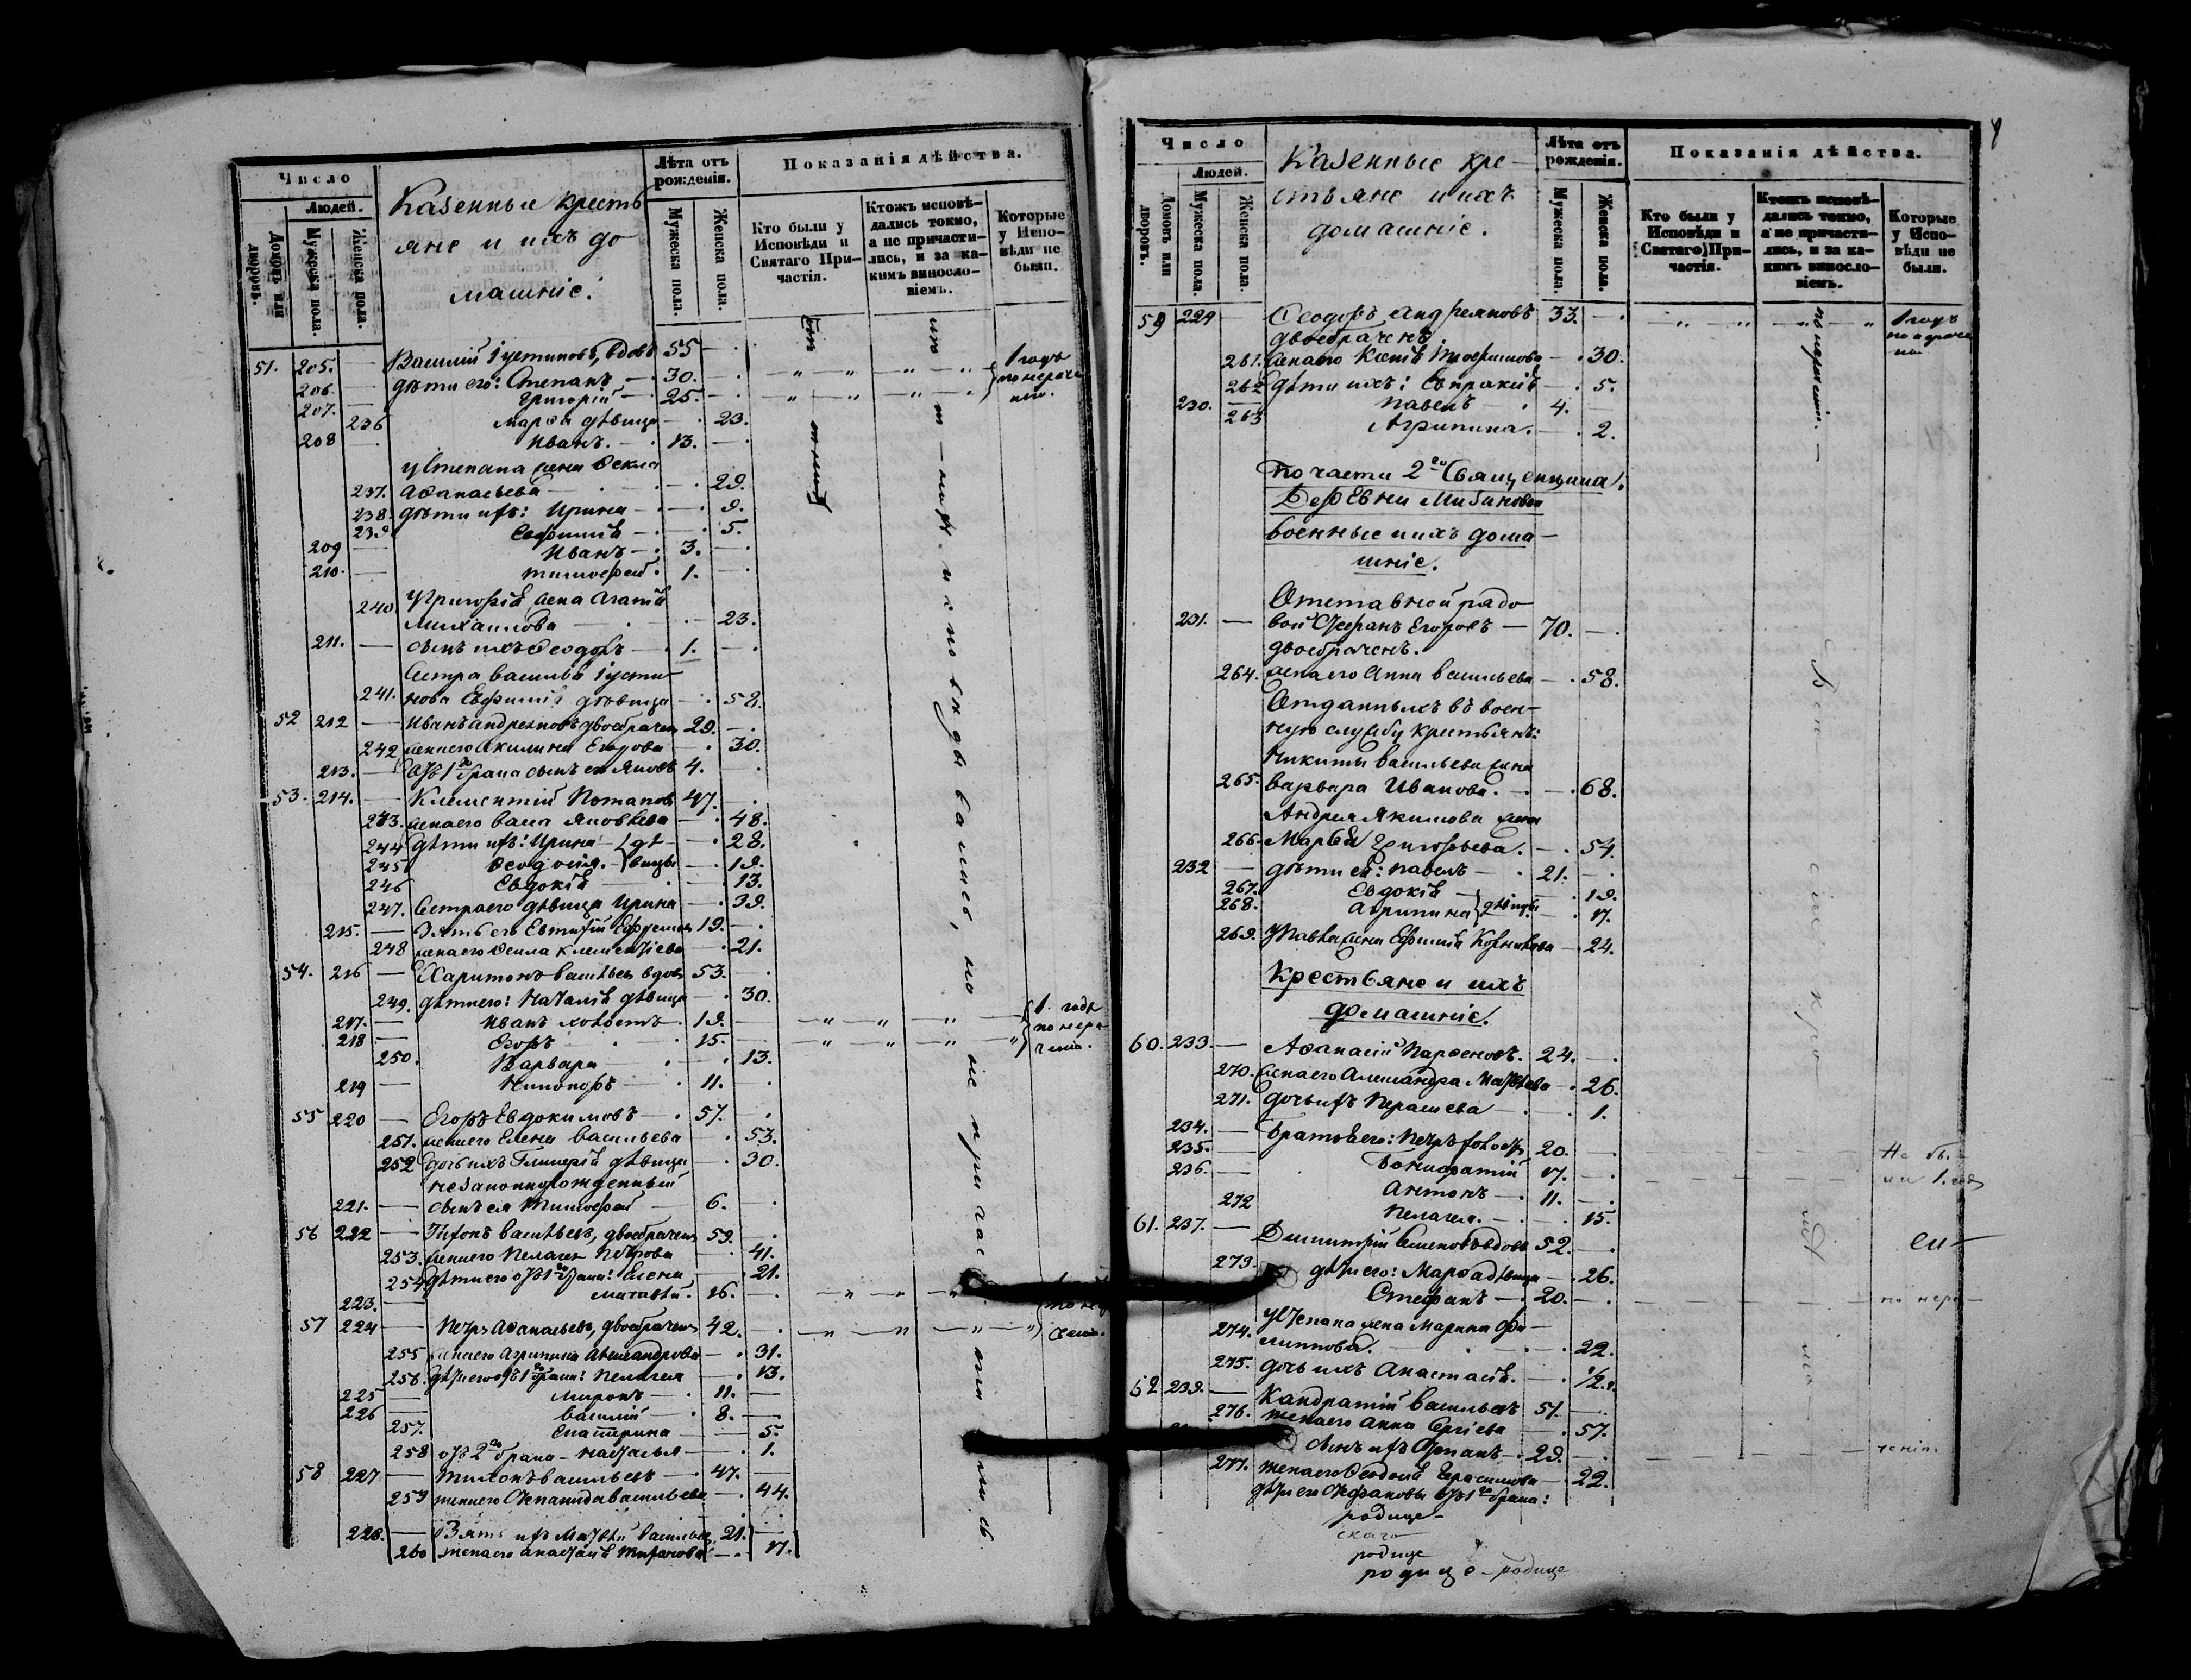 Число
Людей.
Домовъ или дворовъ.
Мужеска пола.
Женска пола.
Казенные кресть
яне и ихъ до
машніе.
Лѣта отъ рожденія.
Мужеска пола.
Женска пола.
Показанія дѣйства.
Кто были у Исповѣди и Святаго Причастія.
Ктожъ исповѣдались токмо, а не причастились, и за какимъ винословіемъ.
Которые у Исповѣди не были.
51. 205. — Василій Іустиновъ, вдовъ 55 —
206. — дѣти его: Степанъ — 30. — 1 годъ
207. — Григорій — 25. — по нераче
236 Марѳа дѣвица — 23.
208 — Иванъ. — 13. —
у Степана жена Ѳекла
237. Аѳанасьева — 29.
238. дѣти ихъ: Ирина — 9.
239 Евфимія — 5.
209 — Иванъ — 3. —
210. — Тимоѳей. 1. —
240. у Григорія жена Агапія
Михаилова — 23.
211. — сынъ ихъ Ѳеодоръ — 1. —
Сестра Василія Іусти
241. нова Евфимія дѣвица — 58.
52 212 — Иванъ Андреяновъ двоебрачен 29. —
242 жена его Акилина Егорова — 30.
213. — отъ 1го брака сынъ его Яковъ 4.
53. 214. — Климентій Потаповъ 47. —
243. жена его Васса Яковлева — 48.
244 дѣти ихъ: Ирина — дѣ — 28.
245 Ѳеодосія. — вицы — 19.
246 Евдокія — 13.
247. Сестра его дѣвица Ирина — 39.
215. — Зять его Евтихій Ефремовъ 19. —
248 жена его Ѳекла Климентіева — 21.
54. 216 — Харитонъ Васильевъ вдовъ 53. —
249. дѣти его: Наталія дѣвица — 30.
217. — Иванъ холостъ 19. — 1. годъ
218 — Егоръ 15. — по нера
250. Варвара — 13. ченію.
219 — Никифоръ 11.
55 220 — Егоръ Евдокимовъ — 57. —
251. жена его Елена Васильева — 53.
252 дочь ихъ Гликерія дѣвица — 30.
незаконнорожденный
221. — сынъ ея Тимоѳей — 6. —
56 222 — Тихонъ Васильевъ, двоебраченъ 59. —
253. жена его Пелагея Петрова — 41.
254 дѣти его отъ 1го брака: Елена — 21.
223. — Матѳей. 16. —
57 224 — Петръ Аѳанасьевъ, двоебраченъ 42. —
255 жена его Агрипина Александрова — 31.
256. дѣти его отъ 1го брака: Пелагея — 13.
225 — Миронъ — 11. —
226 — Василій — 8. —
257. Екатерина — 5.
258 отъ 2го брака — Наталья — 1.
58 227 — Тихонъ Васильевъ — 47. —
259 жена его Степанида Васильева — 44.
228. — Зять ихъ Матвѣй Васильевъ 21. —
260 жена его Анастасія Тихонова — 17.
исповѣдывались, но не причастились
Число
Людей.
Домовъ или дворовъ.
Мужеска пола.
Женска пола.
Казенные кре
стьяне и ихъ
домашніе.
Лѣта отъ рожденія.
Мужеска пола.
Женска пола.
Показанія дѣйства.
Кто были у Исповѣди и Святаго Причастія.
Ктожъ исповѣдались токмо, а не причастились, и за какимъ винословіемъ.
Которые у Исповѣди не были.
59 229 — Ѳеодоръ Андреяновъ 33. — 1 годъ
двоебраченъ.
261. жена его Ксенія Трофимова — 30.
262 дѣти ихъ: Евпраксія — 5.
230. — Павелъ — 4. —
263 Агрипина. — 2.
По части 2го Священника.
Деревни Мибановки
Военные и ихъ дома
шніе.
Отставной рядо
231. — вой Стефанъ Егоровъ — 70. —
двоебраченъ.
264. жена его Анна Васильева — 58.
Отданныхъ въ воен
ную службу крестьянъ:
Никиты Васильева жена
265. Варвара Иванова. — 68.
Андрея Якимова жена
266. Марѳа Григорьева. — 54.
232 — дѣти ея: Павелъ — 21. —
267. Евдокія — 19.
268. Агрипина дѣвицы — 17.
269. у Павла жена Евфимія Корнилова — 24.
Крестьяне и ихъ
домашніе.
60. 233. — Аѳанасій Парѳеновъ. 24. —
270. жена его Александра Матвѣева — 26.
271. дочь ихъ Параскева — 1.
234. — братья его: Петръ холостъ 20. —
235. — Бонифатій 17. — Не бы
236. — Антонъ — 11. — ли 1. годъ
272 Пелагея. — 15.
61. 237. — Димитрій Семеновъ вдовъ 52. —
273. дѣти его: Марѳа дѣвица — 26.
Стефанъ — 20. — по нера
у Стефана жена Марина Фи
274. липпова. — 22.
275. дочь ихъ Анастасія. — 1/2.
62 239. — Кандратій Васильевъ 51. —
276. жена его Анна Сергіева — 57.
сынъ ихъ Стефанъ — 29. — ченію.
277. жена его Ѳеодосія Герасимова — 22.
дѣти его Стефановы отъ 1го брака:
родице
скаго
родице
родице — родице